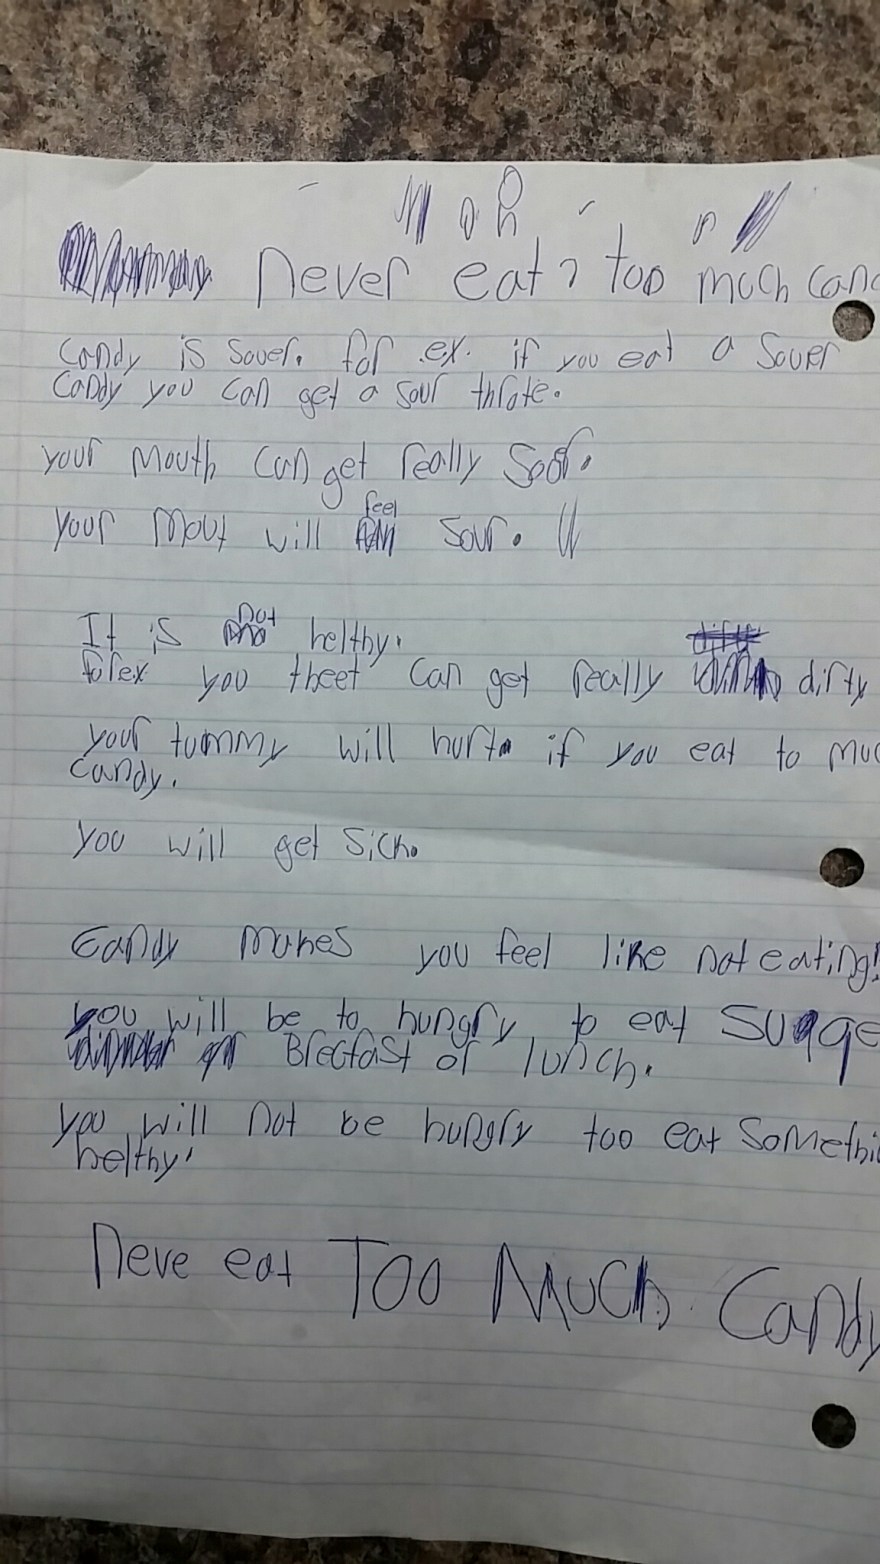 never eat too much cand
Candy is Souer. for ex. if you eat a Souer
Candy you can get a sour throte.
your mouth can get really Soor.
your mout will feel sour.
It is not helthy.
forex you theet can get really dirty
your tummy will hurt if you eat to muc
candy.
you will get sick.
Candy makes you feel like not eating!
you will be to hungry to eat
Brecfast or lunch.
you will not be hungry too eat Somethi
helthy!
neve eat Too Much Candy